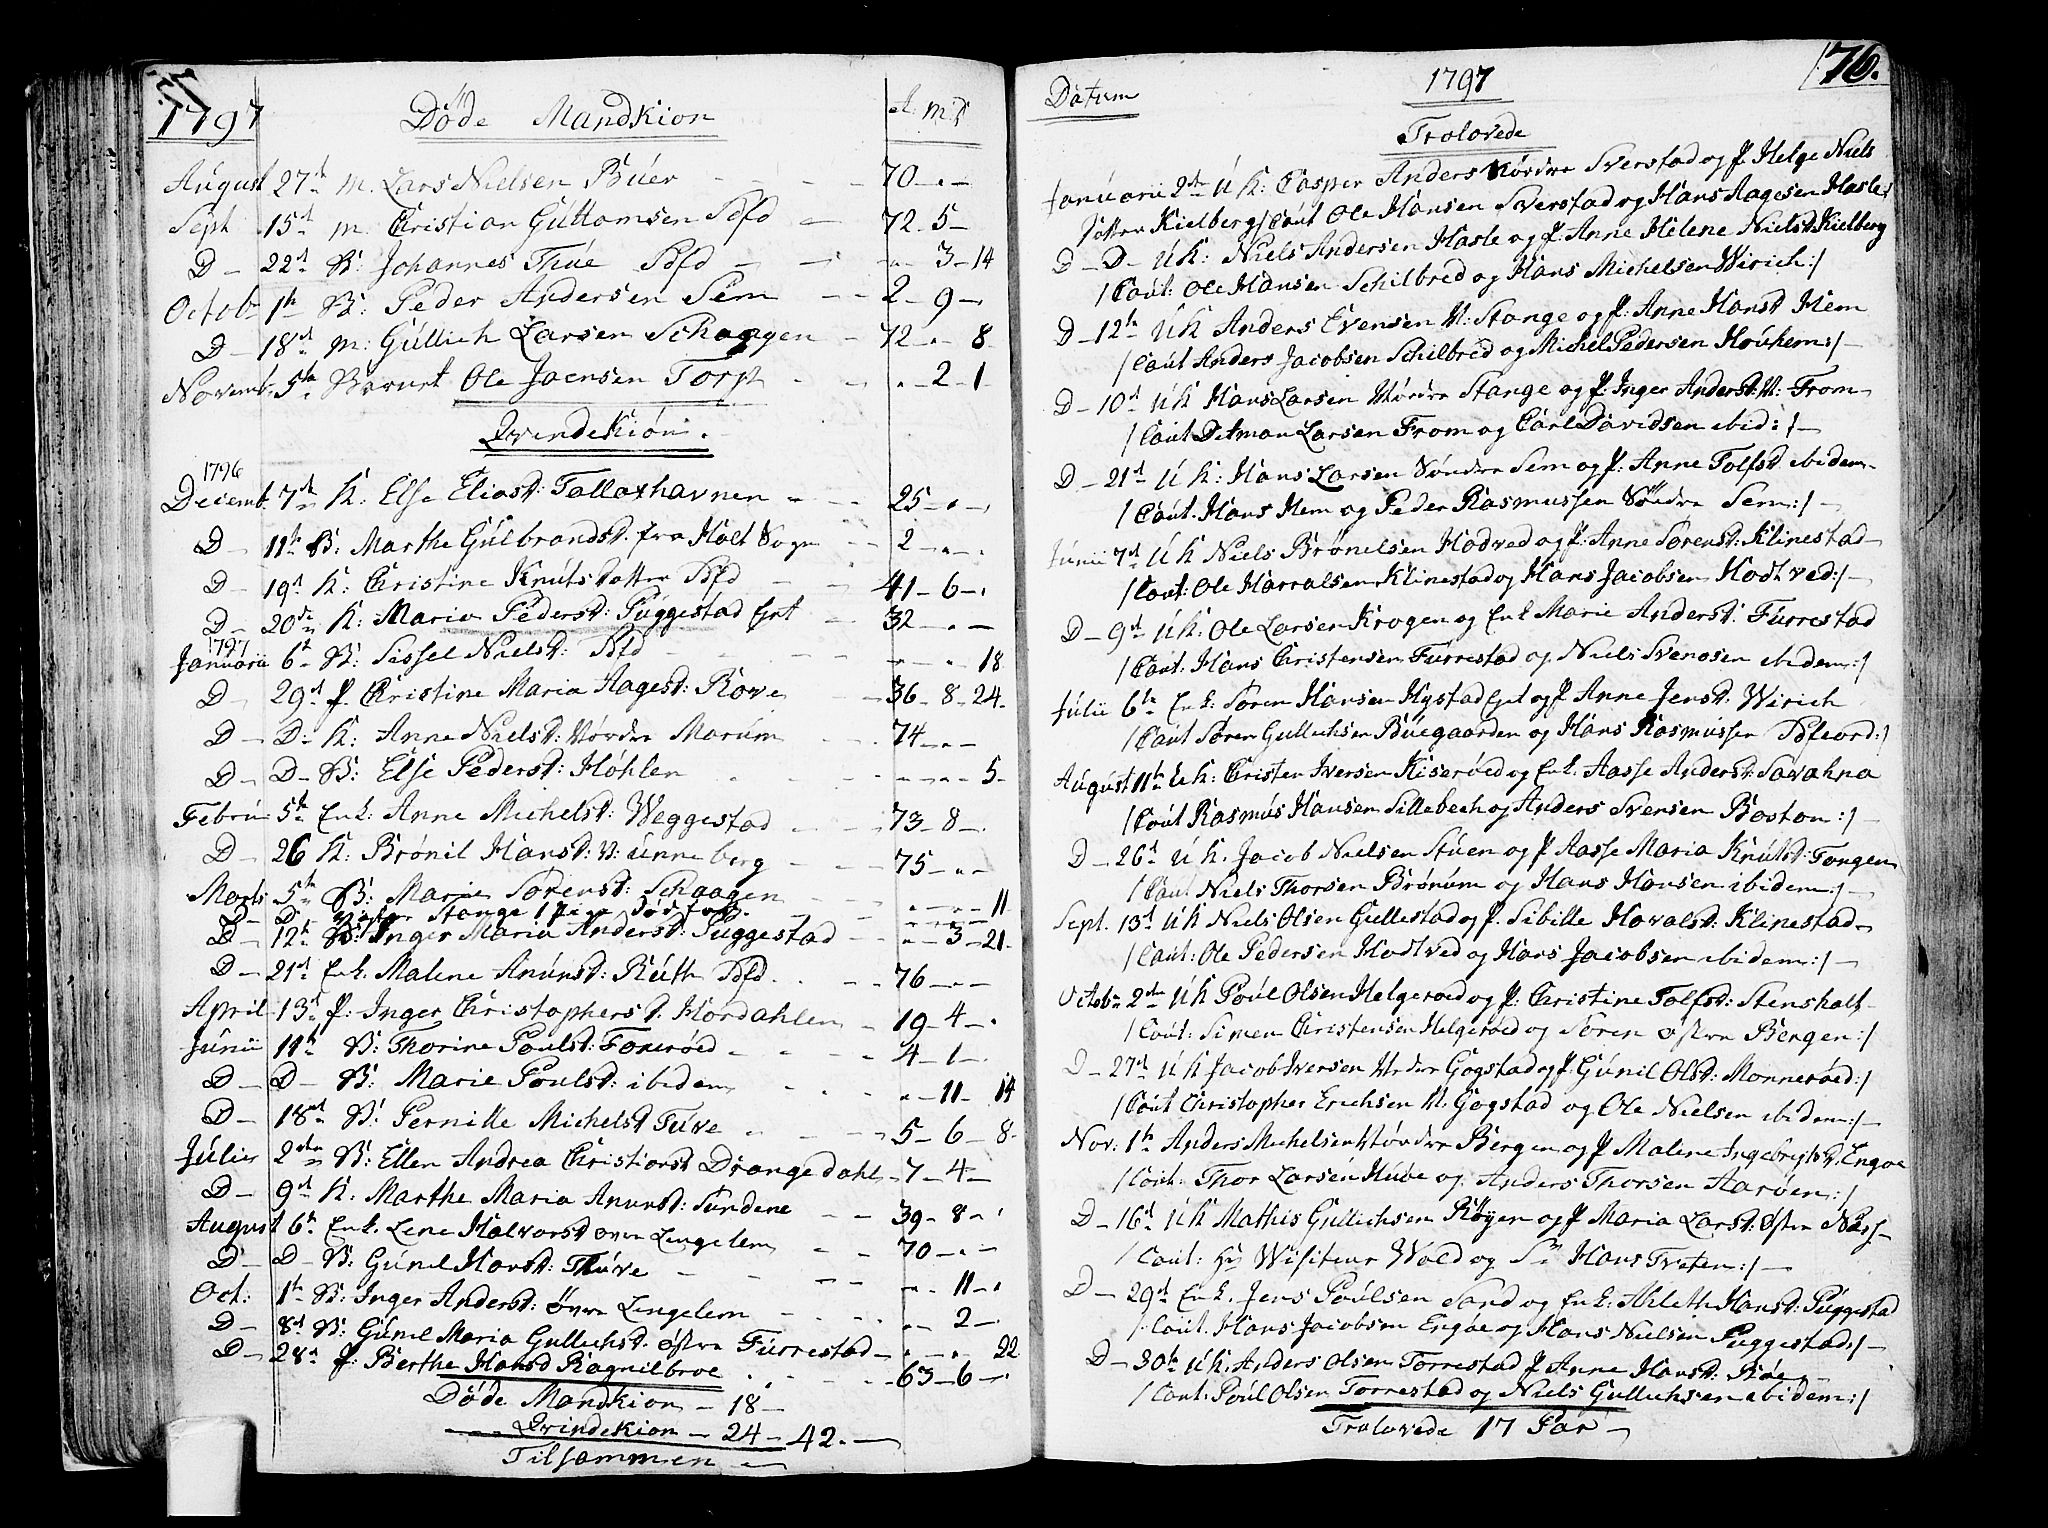 1797 Döde Mandkiön A. M. D
August 27de M. Lars Nielsen Buer - - 70 - " -
Sept 15d M. Christian Guttormsen Sdfd - 72. 5 -
D - 22d B: Johannes Thue Sdfd - - " - 3 - 14
Octobr 1te B: Peder Andersen Sem - - 2 - 9 - .
D - 18d M: Gullich Larsen Schaagen - 72 - " 8
Novemb. 5te Ole Jaensen Torp - - . - 2 - 1
Qvindekiön.
1796
Decemb. 7de K: Else Eliasd: Tallaxhavnen - - 25 - . - .
D - 11te B: Marthe Gulbrandsd. fra Holt Sogn - - 2 - " - .
D - 19d K: Christine Knutsdotter Sdfd - - 41 - 6 - .
D - 20de K: Maria Pedersd: Puggestad - 32 - . -
1797
Januarii 6te B: Sissel Nielsd: Sdfd - - " - " 18
D - 29d P. Christine Maria Aagesd: Rove - 36 - 8 - 24 -
D - D - K: Anne Nielsd: Nördre Marum - 74 - " -
D - D - B: Else Pedersd: Höhlen - " - " - 5 -
Febru 5te Enk: Anne Michelsd: Weggestad - - 73 - 8 - .
D - 26 K: Brönil Hansd: N: unneberg - 75 - " -
Marts 5te B: Marie Sörensd: Schaagen - " - " - 11
D - D - Stange 1 Pige dödfød. - -
D - 12te B: Inger Maria Andersd: Puggestad - - " - 3 - 21 -
D - 21d Enk. Malene Anunsd: Ruth Sdfd. - 76 - " -
April 13d P: Inger Christophersd. Mordahlen - 19 - 4 - .
Junii 11te B: Thorine Poulsd: Fourröed - - 4 - 1 - .
D - D - B: Marie Poulsd: ibidem - " - 11 - 14
D - 18d B: Pernille Michelsd Tuve - - 5 - 6 - 8 -
Julii 2den B: Ellen Andrea Christiansd Drangedahl - 7 - 4 -
D - 9d K. Marthe Maria Anunsd: Sundene - - 39 - 8 - .
August 6te Enk. Lene Halvorsd övre Lingelem - - 70 - . -
D - D - B: Gunil Hansd: Thuve - - " - 11 - .
Oct: 1te B: Inger Andersd: övre Lingelem - " - 2 - .
D - 8d B: Gunil Maria Gullichsd. östre Furrestad - . - . 22
D - 28d P. Berthe Hansd Ragnilbroe - - 63 - 6 - .
Döde Mandkion - 18 -
Qvindekion - 24 - 42. -
Tilsammen -
176.
Datum 1797
Trolovede
Januarii 2de U K: Casper Anders Nørdre Sverstad og P. Helge Niels
dotter Kielberg / Caut Ole Hansen Sverstad og Hans Aagesen Hasle:/
D - D - U K: Niels Andersen Hasle og P. Anne Helene Nielsd Kielberg
/ Caut: Ole Hansen Schilbred og Hans Michelsen Wirich:/
D - 12te U K Anders Evensen N: Stange og P. Anne Hansd Hem
/ Caut Anders Jacobsen Schilbred og Michel Pedersen Houkem:/ -
D - 10d U K Hans Larsen Nördre Stange og P: Inger Andersd: N: From -
/ Caut Ditman Larsen From og Carl Davidsen ibid:/ -
D - 21d U K: Hans Larsen Söndre Sem og P: Anne Tolfsd ibidem -
/ Caut. Hans Hem og Peder Rasmussen Söndre Sem:/ -
Junii 7d U K Niels Brönelsen Hodved og P: Anne Sörensd: Klinestad -
/ Caut: Ole Harralsen Klinestad og Hans Jacobsen Hodtved:/ -
D - 9d U K: Ole Larsen Krogen og Enk Marie Andersd: Furrestad
/ Caut: Hans Christensen Furrestad og Niels Svensen ibidem:/
Julii 6te Enk: Sören Hansen Hystad og P Anne Jensd: Wirich
/ Caut Sören Gullichsen Buegaarden og Hans Rasmussen Sdfiord:/
August 11te U K: Christen Iversen Kiseröed og Enk. Aasse Andersd: Savahna
/ Caut Rasmus Hansen Sillebech og Anders Svensen Boston:/ -
D - 26d U K. Jacob Nielsen Stuen og P Aasse Maria Knutsd: Tongen
/ Caut Niels Thorsen Brönum og Hans Hansen ibidem:/ -
Sept. 13d U K Niels Olsen Gullestad og P. Sibille Haralsd: Klinestad -
/ Caut: Ole Pedersen Hodtved og Hans Jacobsen ibidem:/ -
Octobr 2de U K Poul Olsen Helgeroed og P: Christine Tolfsd: Stenshalt -
/ Caut: Simen Christensen Helgeröed og Sören östre Bergen:/
D - 27d U K Jacob Iversen Nedre Gogstad og P. Gunil Olsd: Monneröed:/
/ Caut Christopher Erichsen N. Gogstad og Ole Nielsen ibidem:/ -
Nov: 1te Anders Michelsen Nördre Bergen og P Malene Ingebrigtsd. Engøe
/ Caut: Thor Larsen Huve og Anders Thorsen Aaröen:/
D - 16d U K Mathis Gullichsen Röyen og P Maria Larsd: östre Næss -
/ Caut: Hr Wisiteur Wold og Sr Hans Treten:/ -
D - 29d Enk. Jens Poulsen Sand og Enk: Ahleth Hansd: Puggestad
/ Caut. Hans Jacobsen Engöe og Hans Nielsen Puggestad:/ -
D - 30te U K. Anders Olsen Torrestad P Anne Hansd: Röe -
/ Caut: Poul Olsen Torrestad og Niels Gullichsen ibidem:/
Trolovede 17 Par -